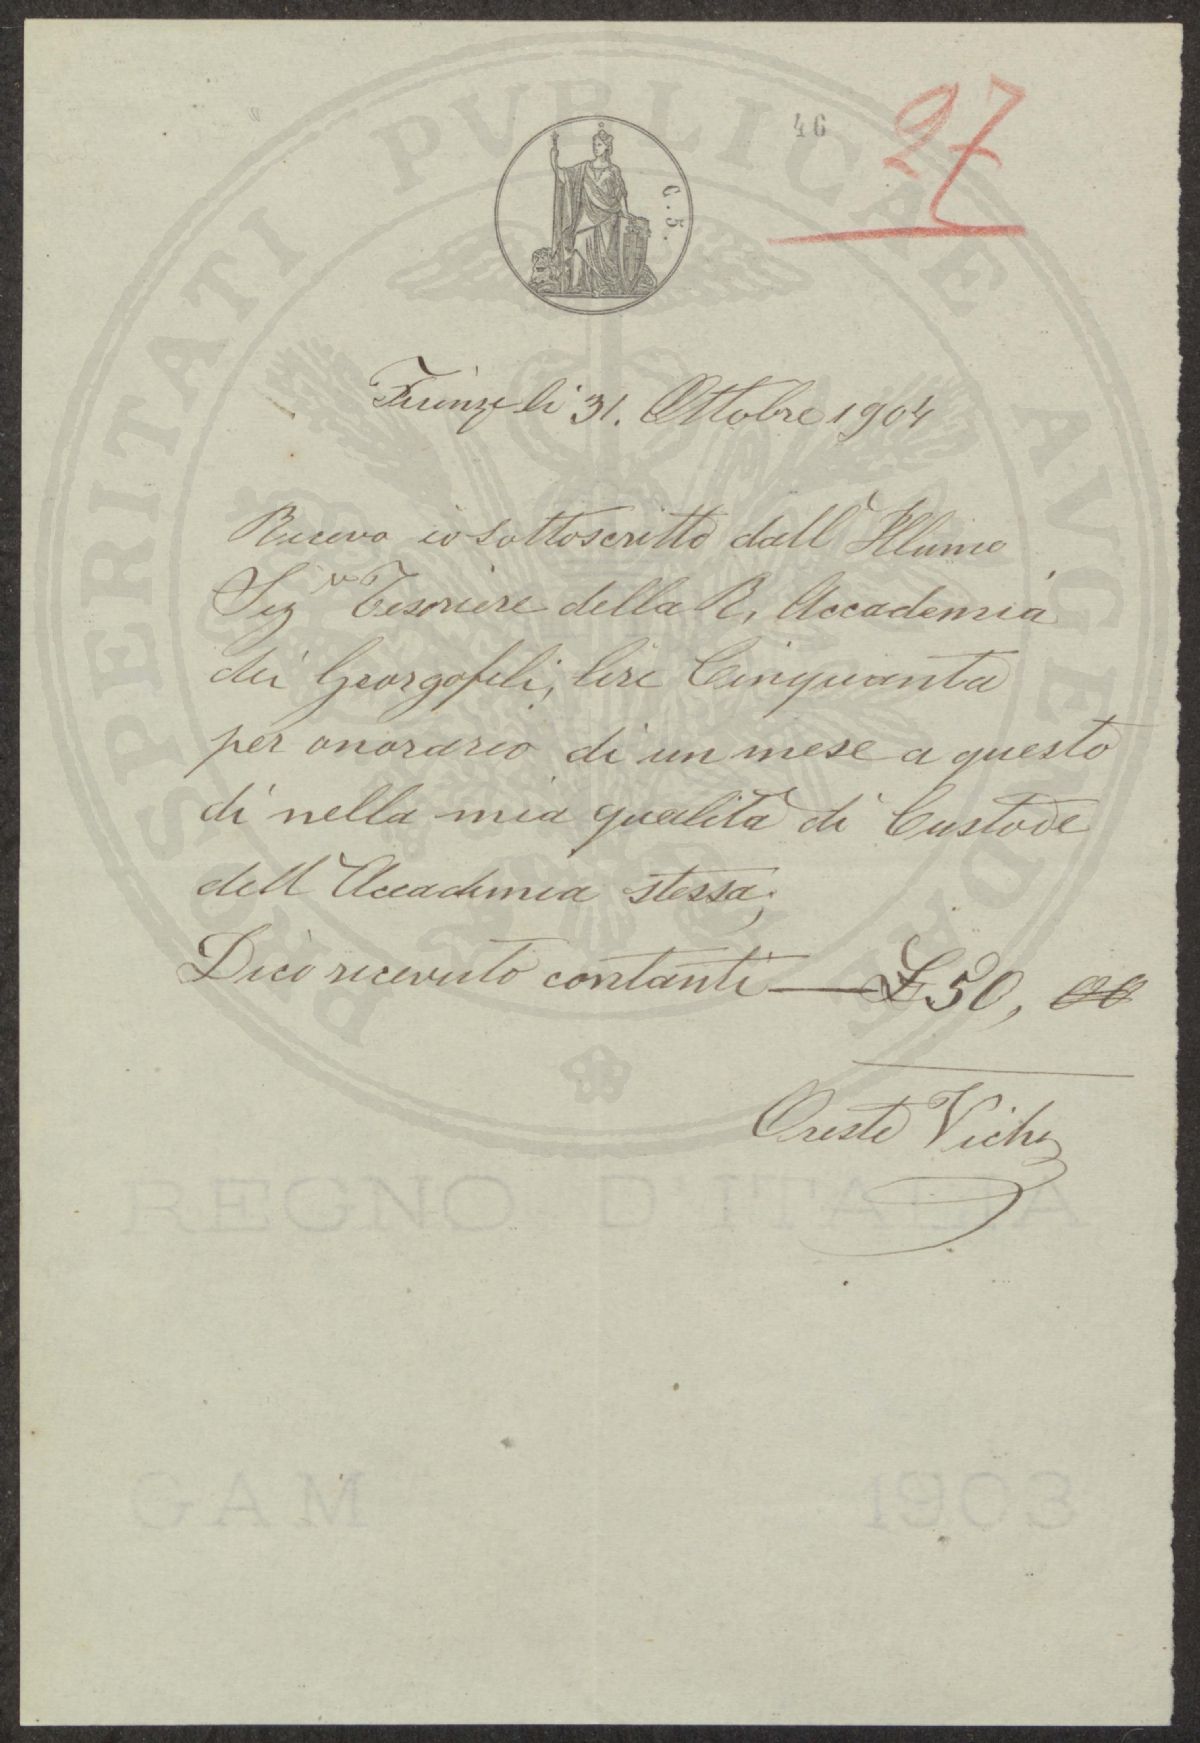 46
27
C. 5.
Firenze li 31. Ottobre 1904
Ricevo io sottoscritto dall' Illumo
Sigr Tesoriere della R, Accademia
dei Georgofili, lire Cinquanta
per onorario di un mese a questo
dì nella mia qualità di Custode
dell' Accademia stessa;
Dico ricevuto contanti — £ 50, 00
Oreste Vichi
PROSPERITATI PVBLICAE AVGENDAE
REGNO D'ITALIA
GAM 1903